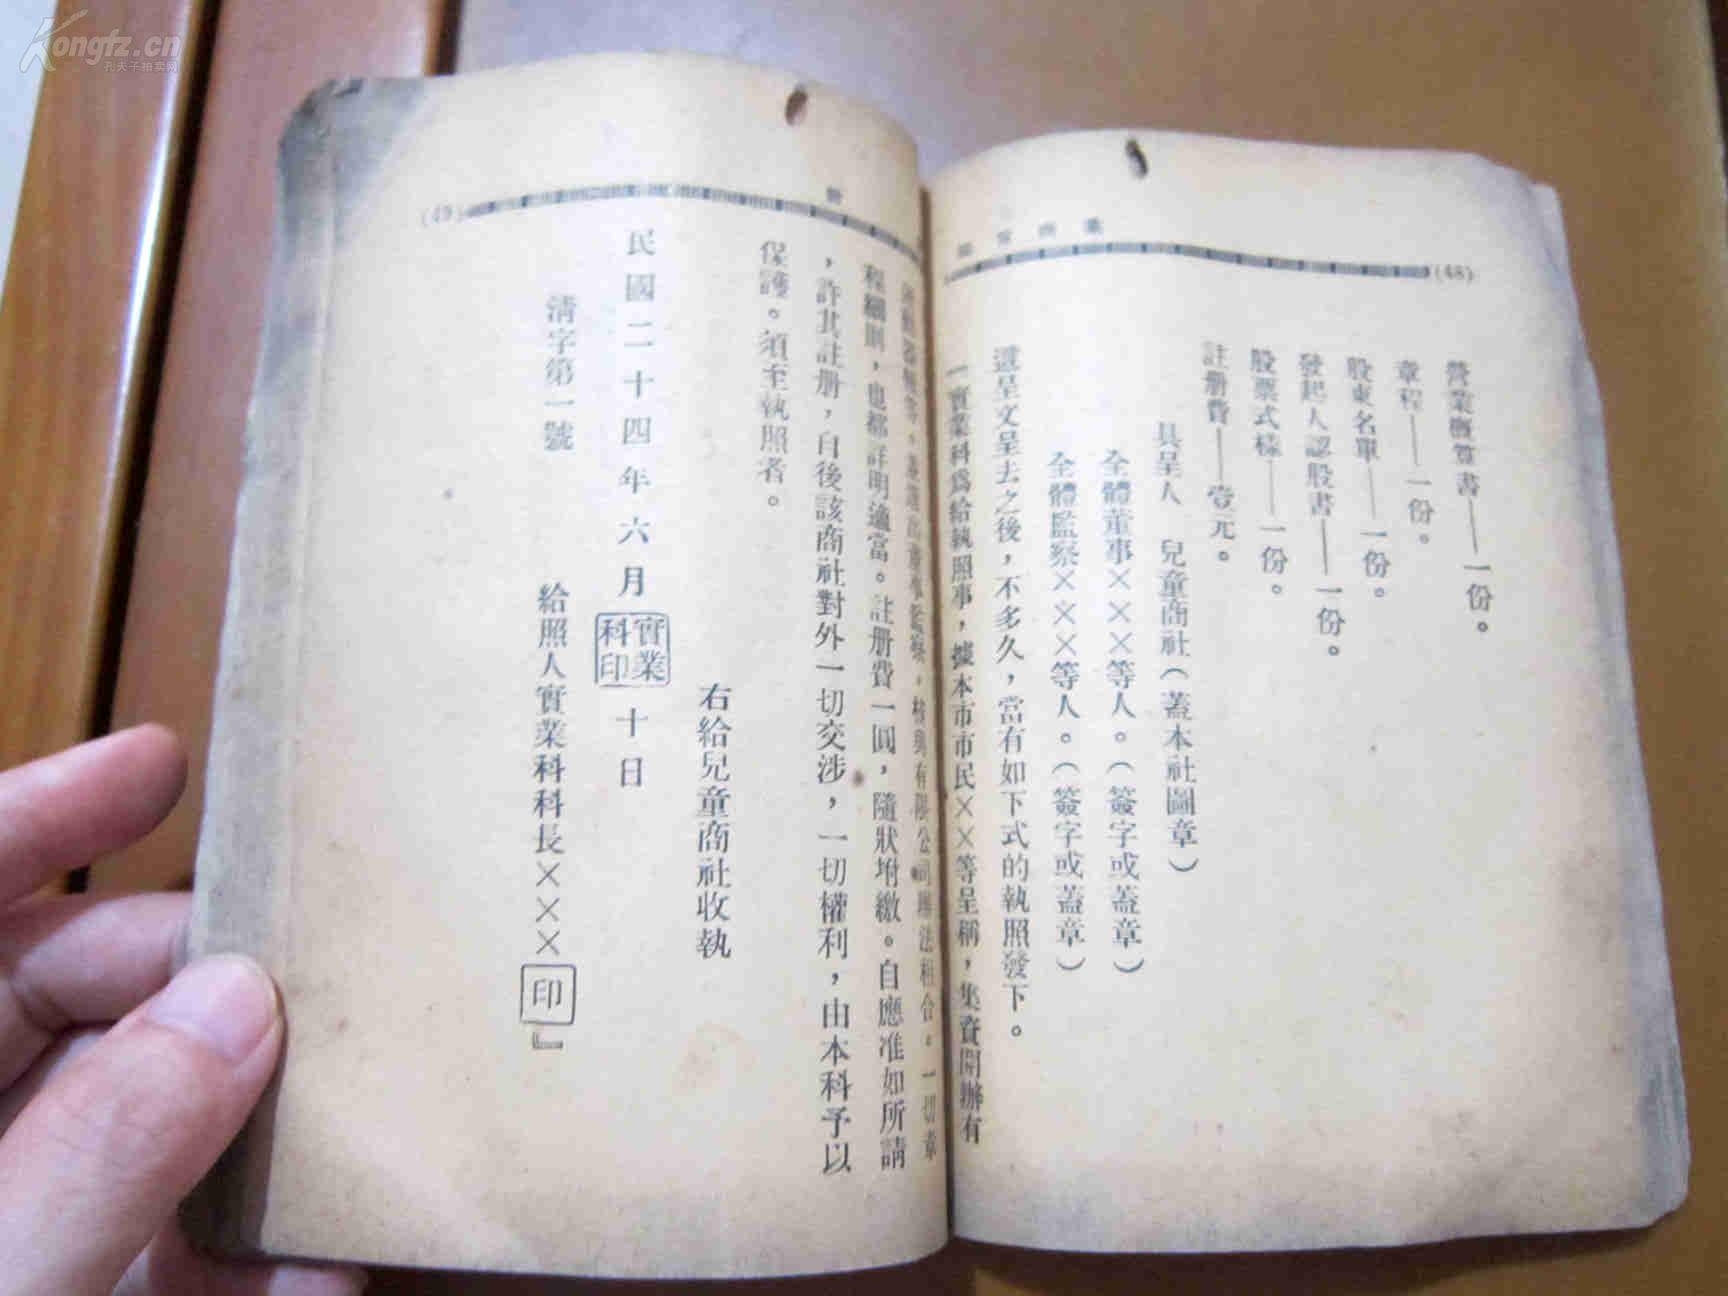 Kongfz.cn
孔夫子拍卖网
(48)
營業概算書——一份。
章程——一份。
股東名單——一份。
發起人認股書——一份。
股票式樣——一份。
註册費——壹元。
具呈人 兒童商社（蓋本社圖章）
全體董事×××等人。（簽字或蓋章）
全體監察×××等人。（簽字或蓋章）
遞呈文呈去之後，不多久，當有如下式的執照發下。
一實業科爲給執照事，據本市市民××等呈稱，集資開辦有
，核與有限公司辦法相合。一切章
程細則，也都詳明適當。註册費一圓，隨狀坿繳。自應准如所請
，許其註册，自後該商社對外一切交涉，一切權利，由本科予以
保護。須至執照者。
右給兒童商社收執
民國二十四年六月 實業科印 十日
淸字第一號 給照人實業科科長×××印』
(49)